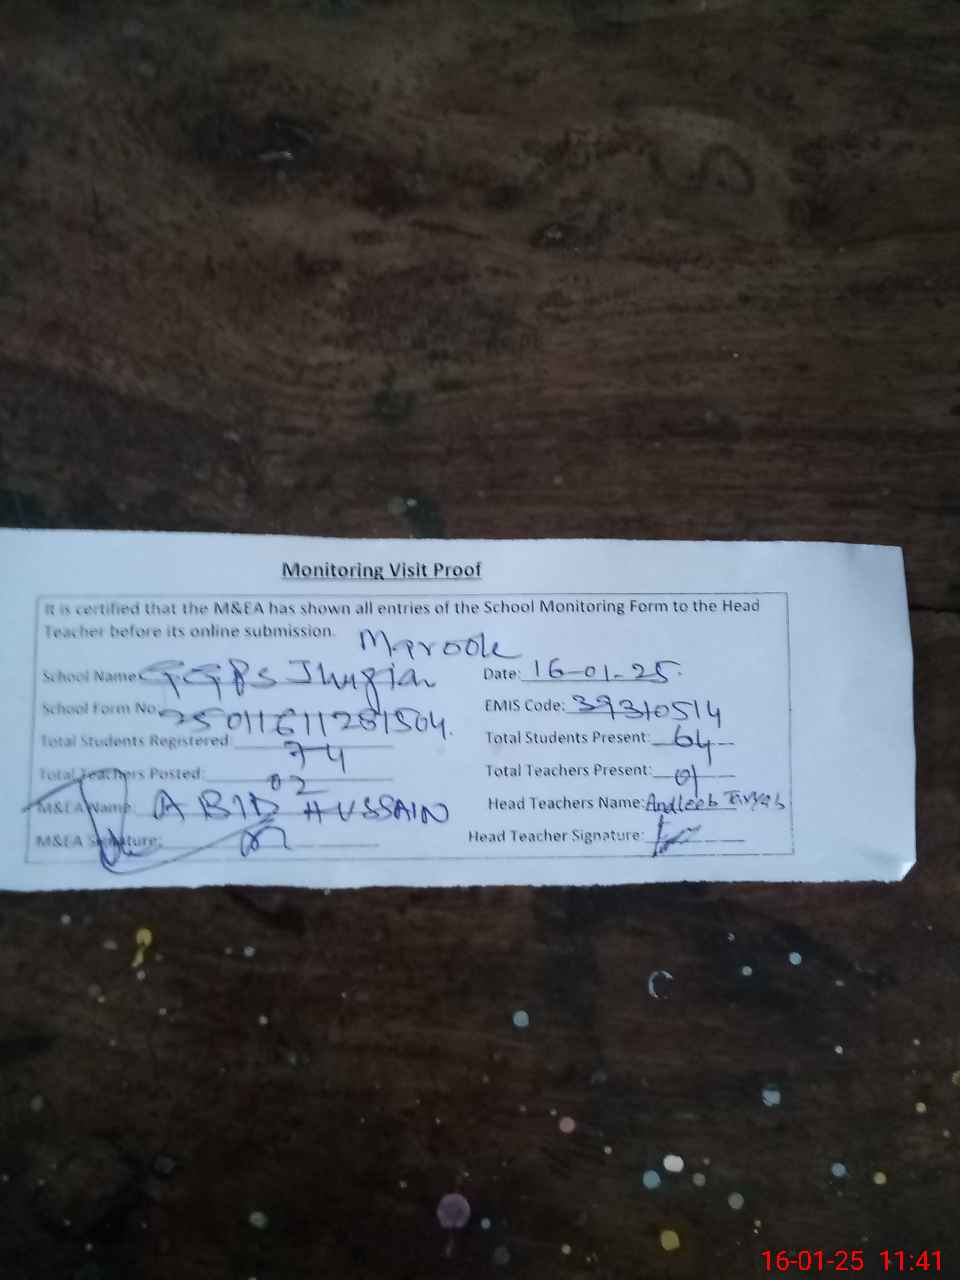 Monitoring Visit Proof
It is certified that the M&EA has shown all entries of the School Monitoring Form to the Head
Teacher before its online submission.
School Name GGPS Jhugian Date: 16-01-25.
School Form No. EMIS Code: 39310514
Total Students Registered: 74 Total Students Present: 64
Total Teachers Posted: 02 Total Teachers Present: 01
M&EA Name: ABID HUSSAIN Head Teachers Name: Andleeb
M&EA Signature: Head Teacher Signature:
16-01-25 11:41